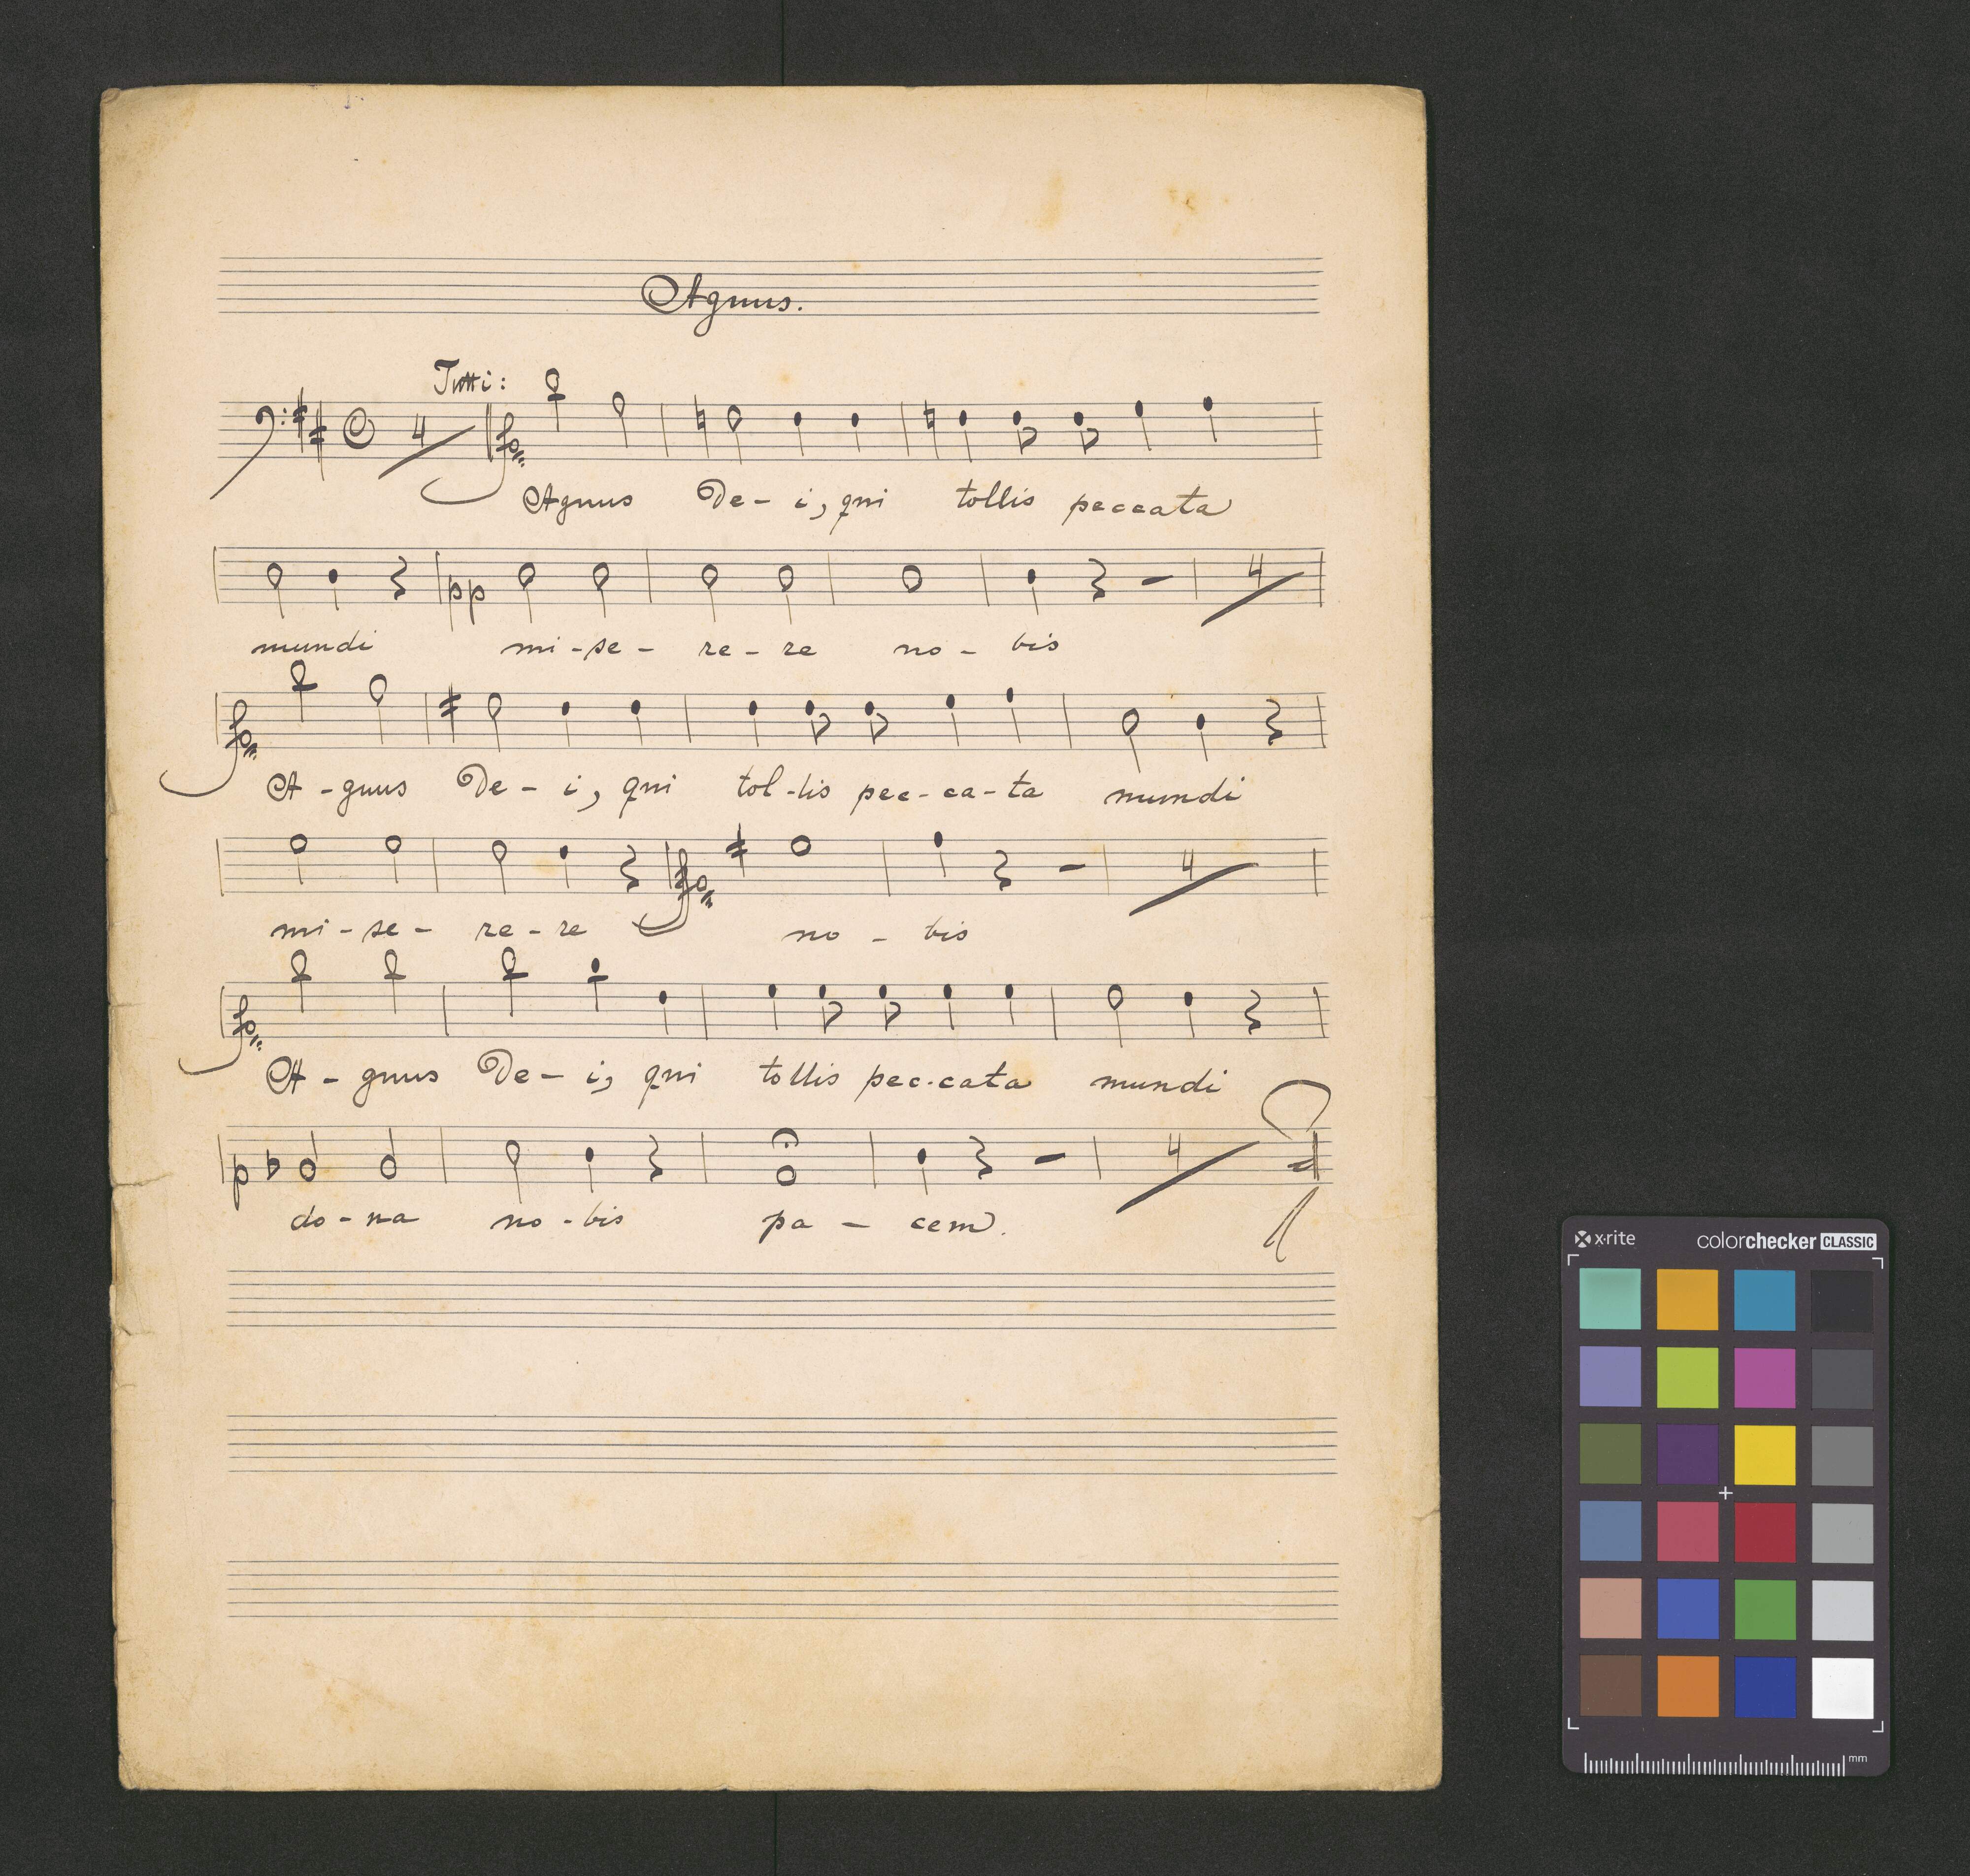 Agnus.
Tutti:
4
Agnus De-i, qui tollis peccata
4
mundi mi-se-re-re no-bis
A-gnus De-i, qui tol-lis pec-ca-ta mundi
4
mi-se-re-re no-bis
A-gnus De-i, qui tollis pec-cata mundi
4
do-na no-bis pa-cem.
x·rite colorchecker CLASSIC
mm